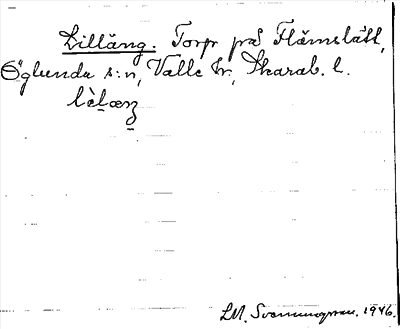 Lilläng. Torp på Flämslätt,
Öglunda s:n, Valle hr, Skarab. l.
L.M. Svenningsson. 1946.